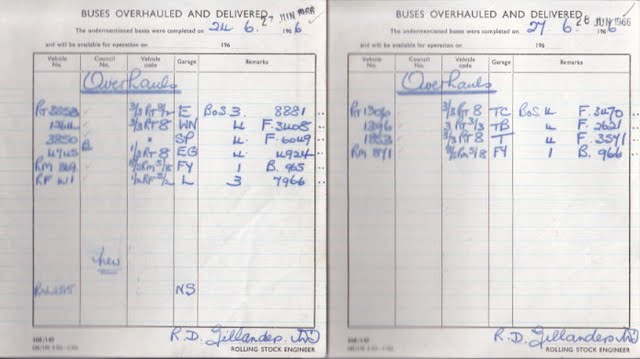 BUSES OVERHAULED AND DELIVERED
27 JUN 1966
The undermentioned buses were completed on 24. 6. 1966
and will be available for operation on 196
Vehicle No. Council No. Vehicle code Garage Remarks
Overhauls
E BoS 3. 8881
1364 3/3 RT 8 WN 4 F. 3408
3850 " SP 4. F. 6049
4745 EG 4. 4924
FY 1 B. 965
L 3 7966
New
NS
R.D. Gillanders.
ROLLING STOCK ENGINEER
BUSES OVERHAULED AND DELIVERED
28 JUN 1966
The undermentioned buses were completed on 27. 6. 1966
and will be available for operation on 196
Vehicle No. Council No. Vehicle code Garage Remarks
Overhauls
RT 1306 3/3 RT 8 TC BoS. 4 F. 3470
1396 TB 4 F. 2621
3/3 RT 8 T 4 F. 3541
RM 871 FY 1 B. 966
R.D. Gillanders
ROLLING STOCK ENGINEER